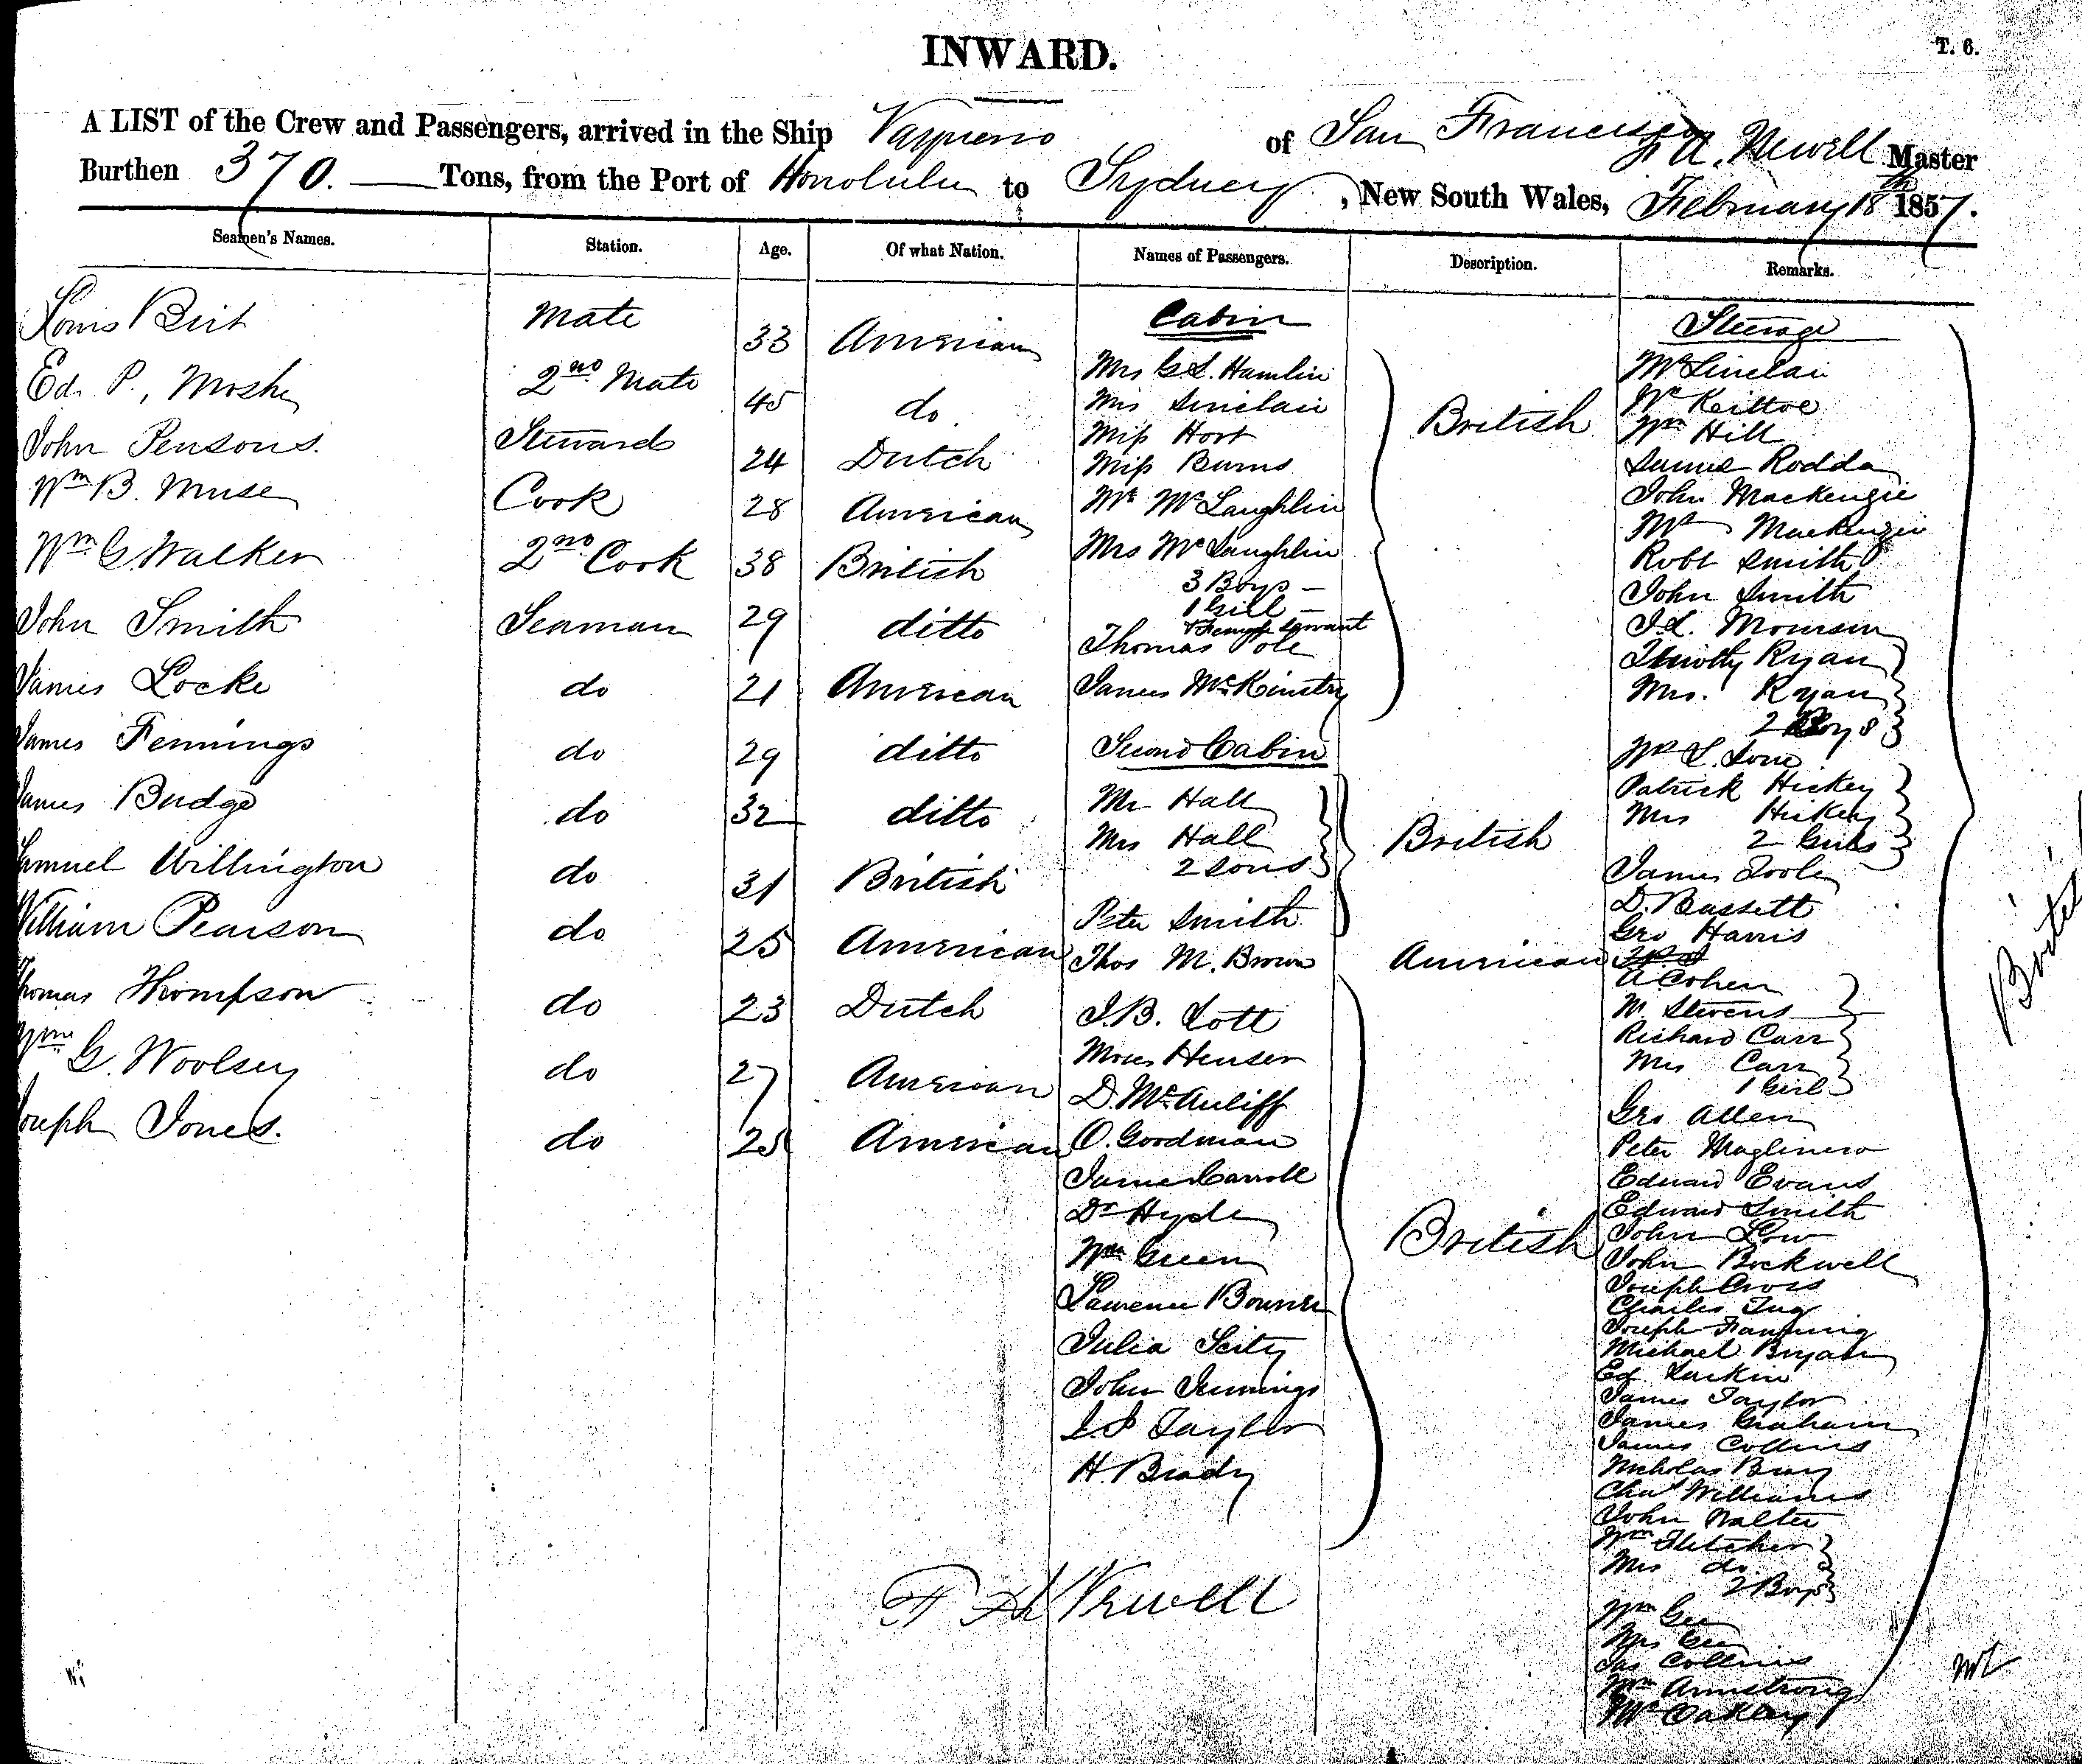 INWARD.
T. 6.
A LIST of the Crew and Passengers, arrived in the Ship Vaquero of San Francisco F. A. Newell Master
Burthen 370. Tons, from the Port of Honolulu to Sydney, New South Wales, February 18th 1857.
Seamen's Names. Station. Age. Of what Nation. Names of Passengers. Description. Remarks.
Birt Mate 33 American
Ed. P. Mate 2no. 45 do
John Pensons. Steward 24 Dutch
Wm B. Muse Cook 28 American
Wm G Walker 2no Cook 38 British
John Smith Seaman 29 ditto
James Locke do 21 American
James Fennings do 29 ditto
James Budge do 32 ditto
Samuel Willington do 31 British
William Pearson do 25 American
Thomas Thompson do 23 Dutch
Wm G. Woolsey do 27 American
Joseph Jones. do 25 American
Cabin
Mrs G.S. Hamlin
Mrs Sinclair
Miss Hort
Miss Burns
Mr McLaughlin
Mrs McLaughlin
3 Boys
1 Girl
servant
Thomas Pole
James McKinstry
British
Second Cabin
Mr Hall
Mrs Hall
2 Sons
Peter Smith
British
Thos M. Brown American
J.B. Lott
Moses Henser
D. McAuliff
O. Goodman
James Carroll
Dr Hyde
Wm Green
Lawrence
Julia
John Jennings
Taylor
H Brady
British
F A Newell
Steerage
Mr Sinclair
Wm Hill
Rodda
John Mackenzie
Mrs Mackenzie
Robt Smith
John Smith
Timothy Ryan
Mrs. Ryan
2 Boys
Patrick Hickey
Mrs Hickey
2 Girls
James Toole
D. Bassett
Geo Harris
A Cohen
W. Stevens
Richard Carr
Mrs Carr
1 Girl
Geo Allen
Peter
Edward Evans
Edward Smith
John Low
John Bockwell
Joseph Cross
Charles
Joseph Fanning
Michael Bryan
Ed Larkin
James Taylor
James Graham
James Collins
Nicholas Bray
Chas Williams
John Walter
Wm Fletcher
Mrs do
2 Boys
Wm Gee
Mrs Gee
Jas Collins
Wm Armstrong
Mr Oakley